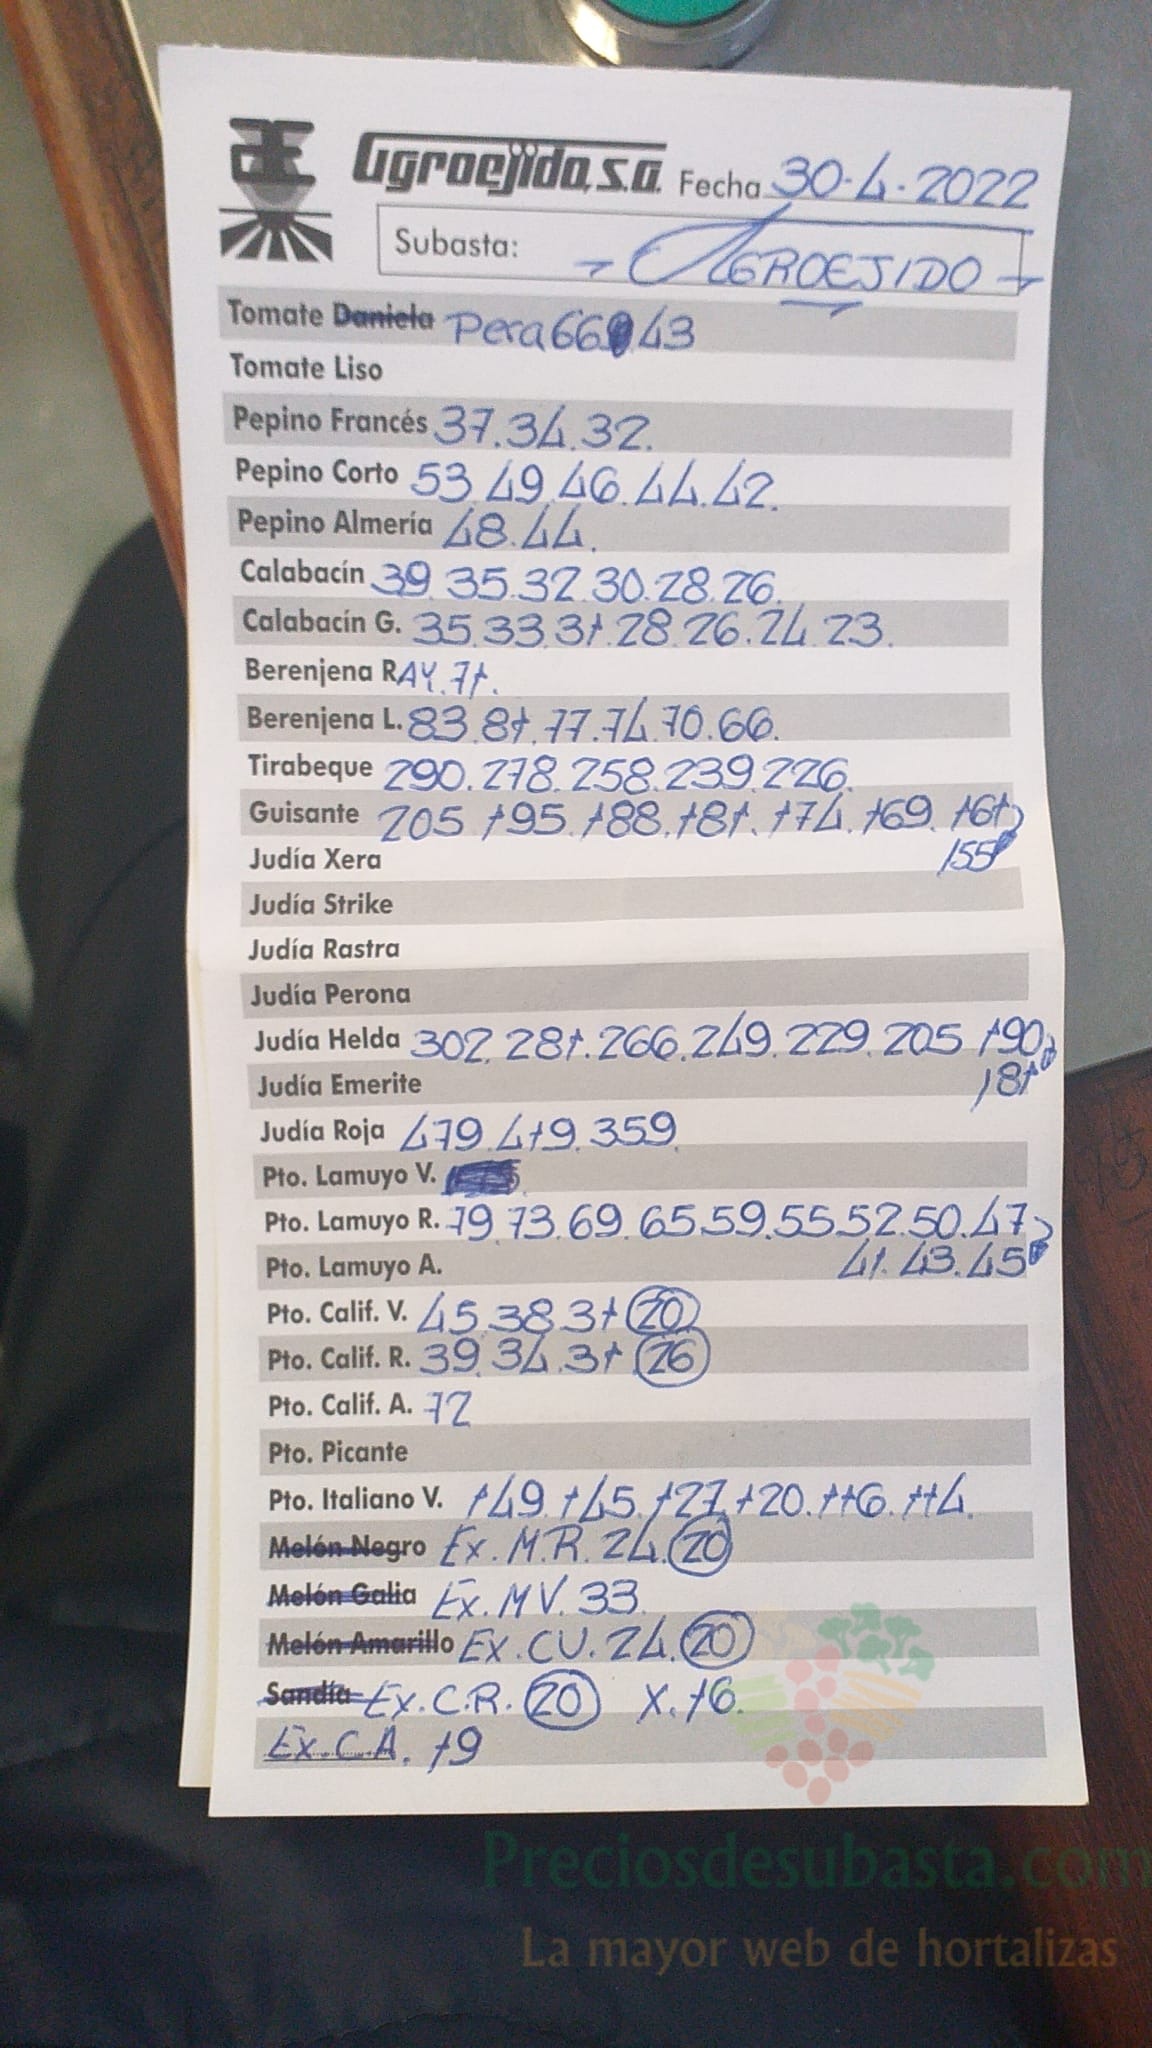 AE Agroejido, S.A. Fecha 30-4-2022
Subasta: AGROEJIDO
Tomate Daniela Pera 66 43
Tomate Liso
Pepino Francés 37.34.32.
Pepino Corto 53.49.46.44.42.
Pepino Almería 48.44.
Calabacín 39.35.32.30.28.26.
Calabacín G. 35.33.31.28.26.24.23.
Berenjena RAY.71.
Berenjena L. 83.81.77.74.70.66.
Tirabeque 290.278.258.239.226.
Guisante 205.195.188.181.174.169.161
155
Judía Xera
Judía Strike
Judía Rastra
Judía Perona
Judía Helda 302.281.266.249.229.205.190
181
Judía Emerite
Judía Roja 479.419.359.
Pto. Lamuyo V.
Pto. Lamuyo R. 79.73.69.65.59.55.52.50.47
Pto. Lamuyo A. 41.43.45
Pto. Calif. V. 45.38.31 20
Pto. Calif. R. 39.34.31 26
Pto. Calif. A. 72
Pto. Picante
Pto. Italiano V. 149.145.127.120.116.114.
Melón Negro Ex.M.R.24.20
Melón Galia Ex.MV.33.
Melón Amarillo Ex.CU.24.20
Sandía Ex.C.R.20 X.16.
Ex.C.A. 19
Preciosdesubasta.com
La mayor web de hortalizas